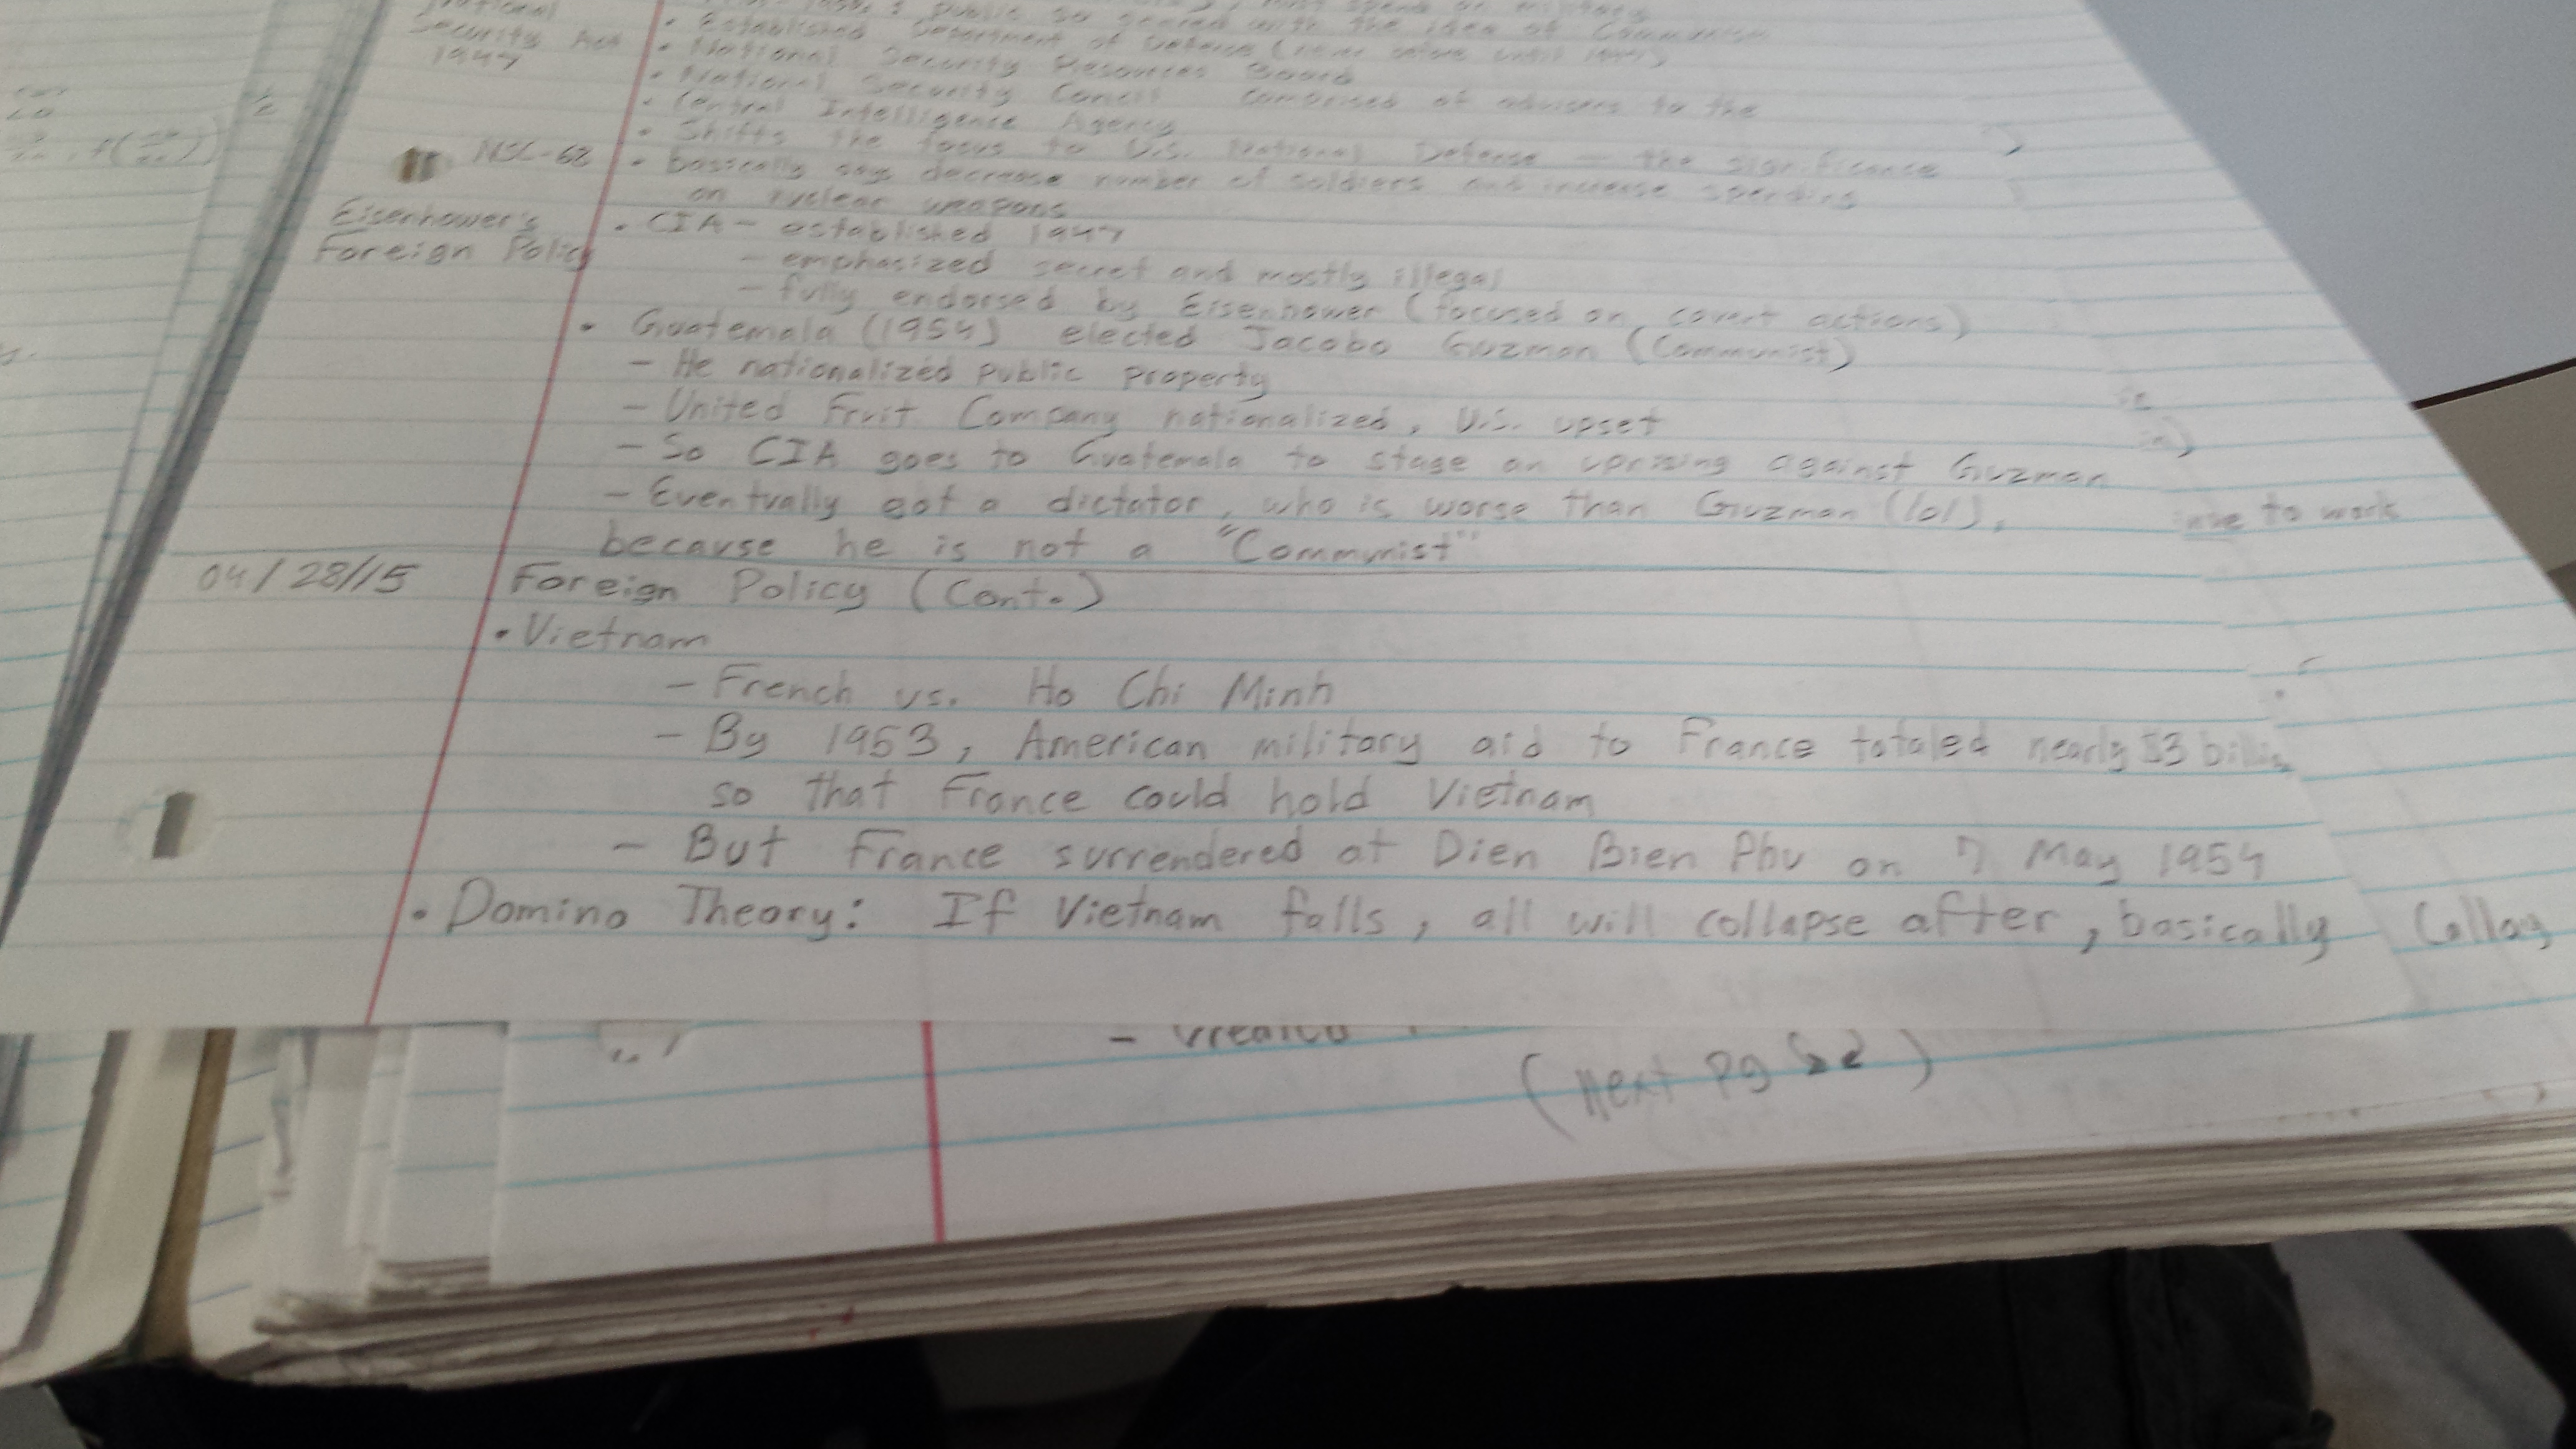 Security Act
1947
public so scared with the idea of Communism
• Established Department of Defense
• National Security Resources Board
• National Security Concil comprised of advisors to the
• Central Intelligence Agency
• Shifts the focus to U.S. National Defense – the significance
NSC-68 • basically says decrease number of soldiers and increase spending
on nuclear weapons
Eisenhower's
Foreign Policy
• CIA – established 1947
– emphasized secret and mostly illegal
– fully endorsed by Eisenhower (focused on covert actions)
• Guatemala (1954) elected Jacobo Guzman (Communist)
– He nationalized public property
– United Fruit Company nationalized, U.S. upset
– So CIA goes to Guatemala to stage an uprising against Guzman
– Eventually got a dictator, who is worse than Guzman (lol),
because he is not a "Communist"
to work
04/28/15 Foreign Policy (Cont.)
• Vietnam
– French vs. Ho Chi Minh
– By 1953, American military aid to France totaled nearly $3 billion
so that France could hold Vietnam
– But France surrendered at Dien Bien Phu on 7 May 1954
• Domino Theory: If Vietnam falls, all will collapse after, basically
(next pg